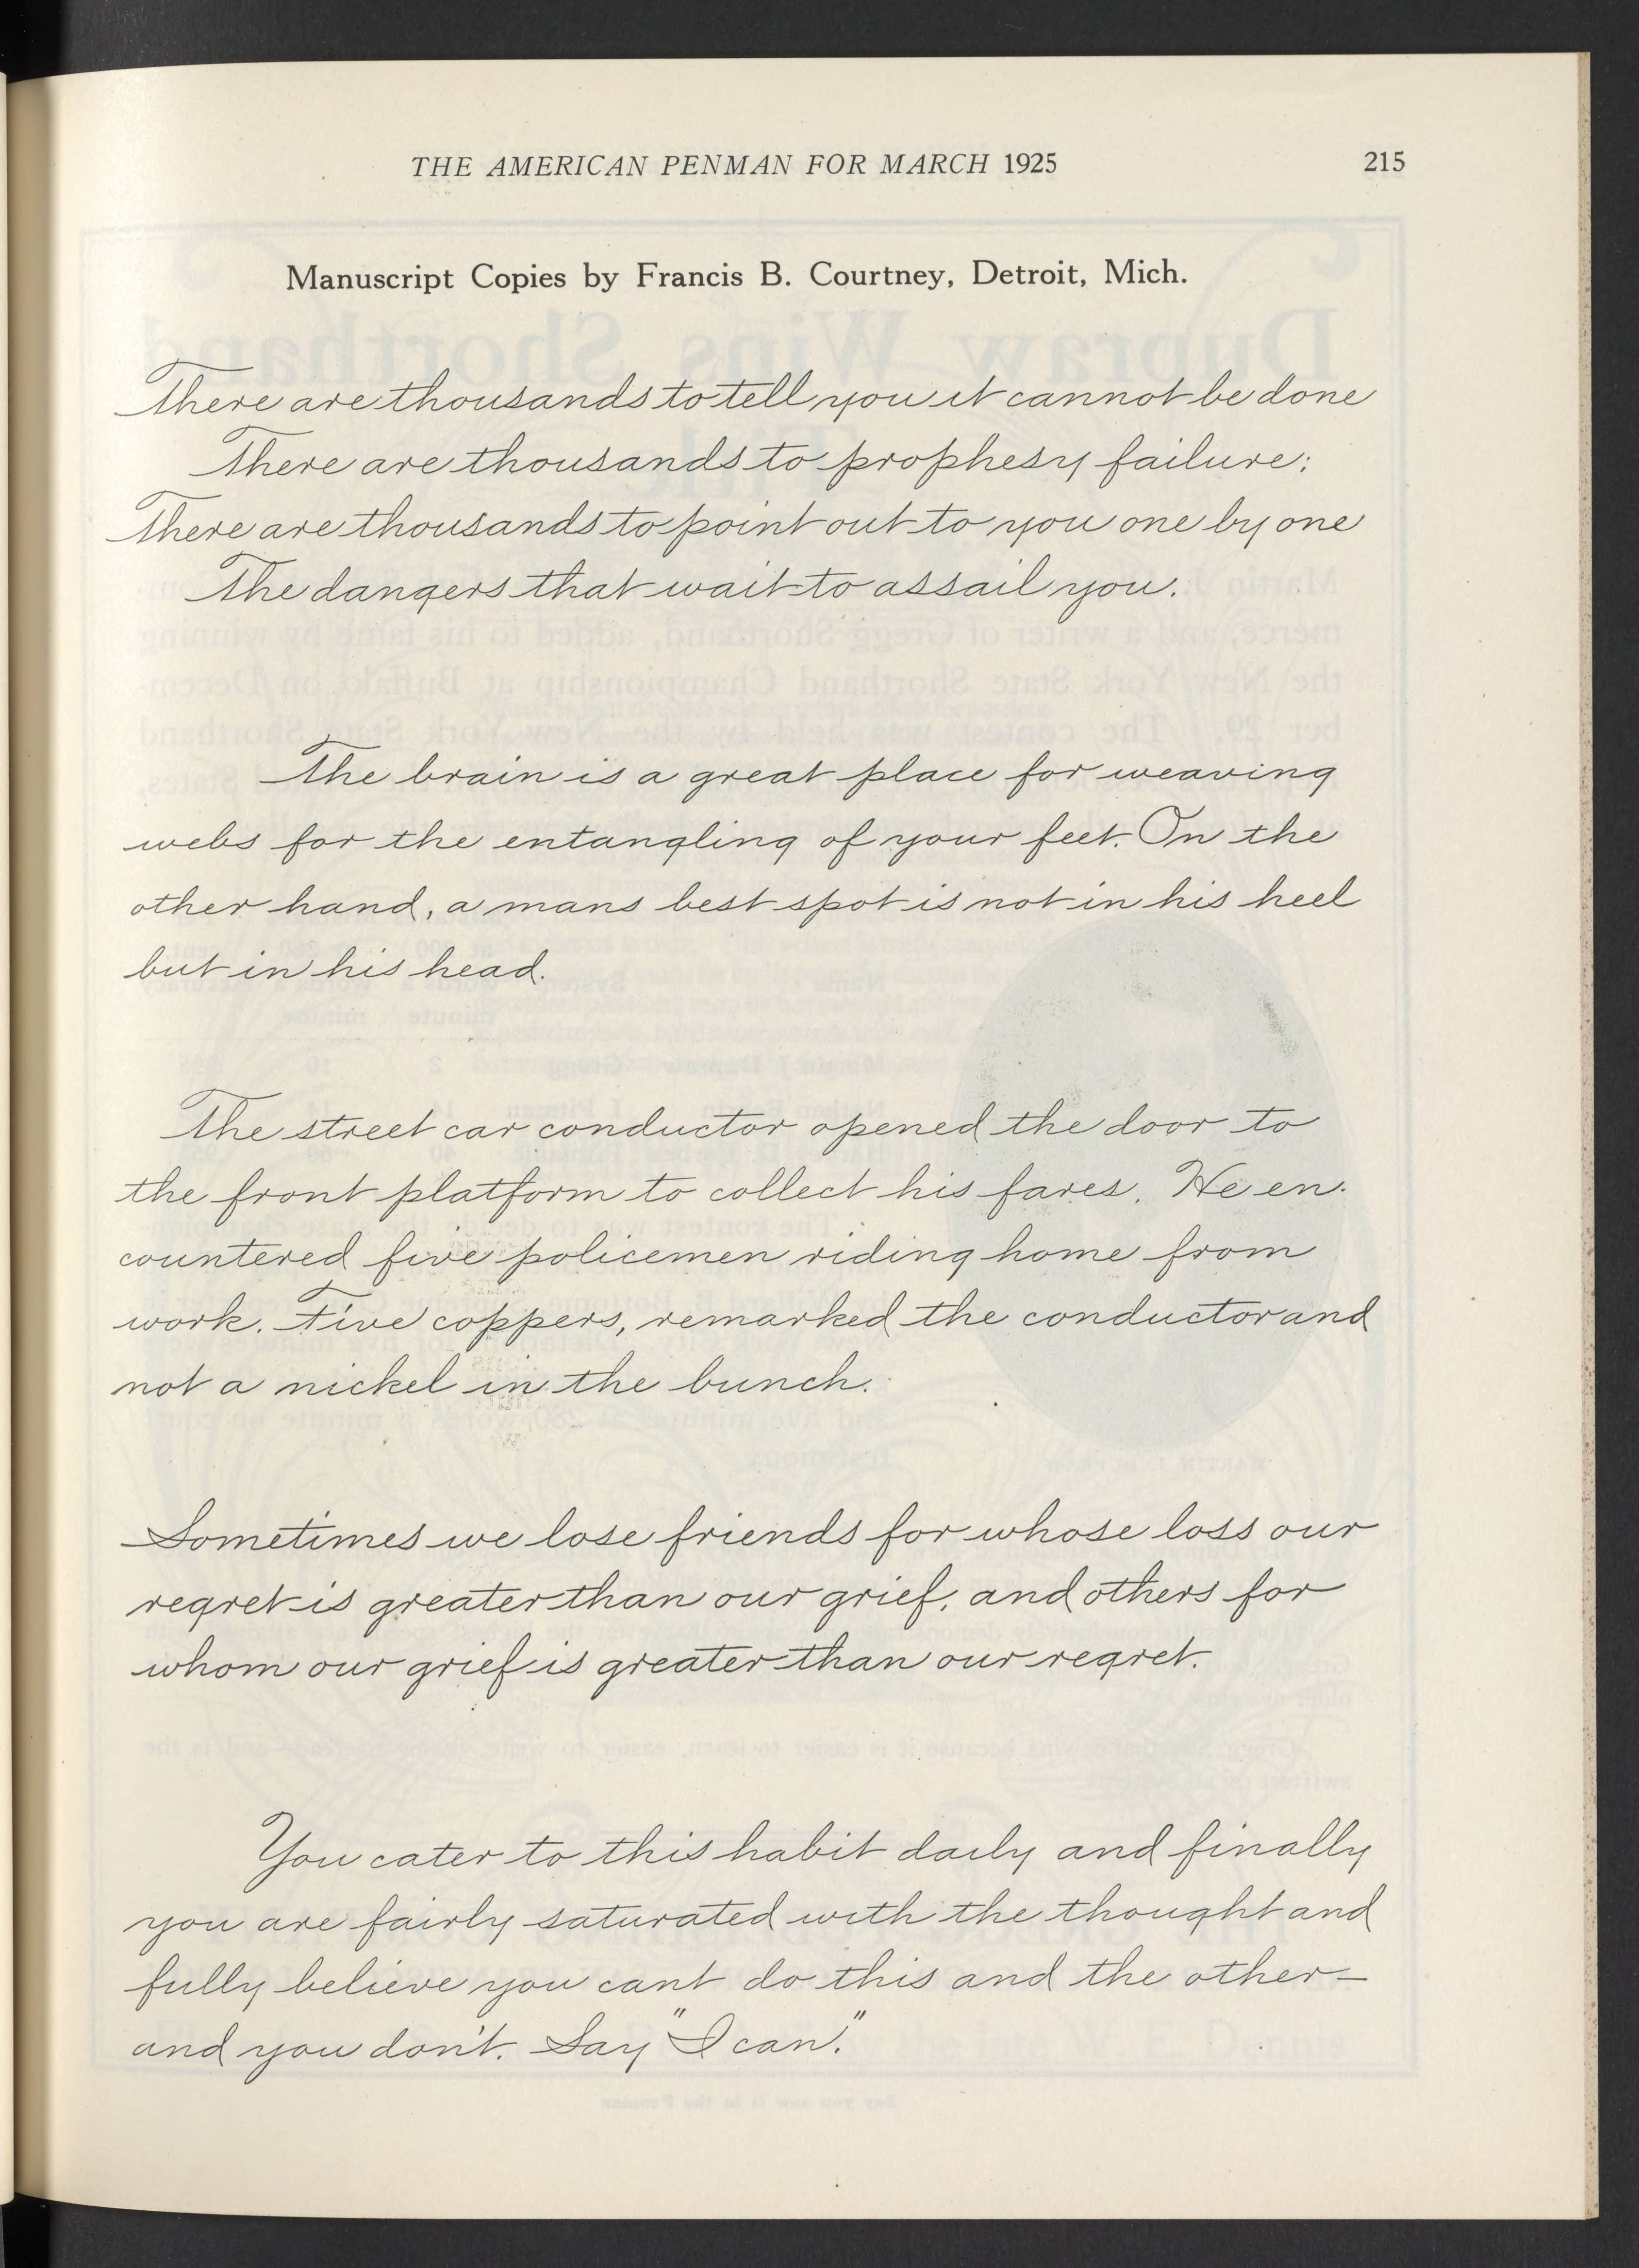 THE AMERICAN PENMAN FOR MARCH 1925 215
Manuscript Copies by Francis B. Courtney, Detroit, Mich.
There are thousands to tell you it cannot be done
There are thousands to prophesy failure;
There are thousands to point out to you one by one
The dangers that wait to assail you.
The brain is a great place for weaving
webs for the entangling of your feet. On the
other hand, a mans best spot is not in his heel
but in his head.
The street car conductor opened the door to
the front platform to collect his fares. He en-
countered five policemen riding home from
work. Five coppers, remarked the conductor and
not a nickel in the bunch.
Sometimes we lose friends for whose loss our
regret is greater than our grief, and others for
whom our grief is greater than our regret.
You cater to this habit daily and finally
you are fairly saturated with the thought and
fully believe you cant do this and the other—
and you don't. Say "I can."